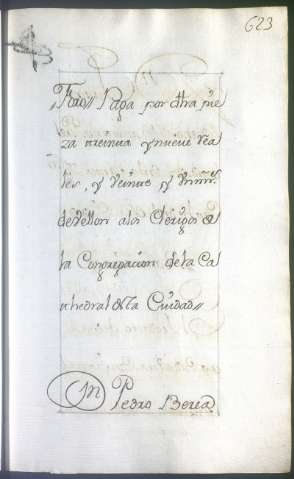 623
Paga por dha pie
za treinta y nueve rea
les, y veinte y mrs.
de vellon a los Clerigos de
la Congregacion de la Ca
thedral de la Ciudad
Pedro Berea